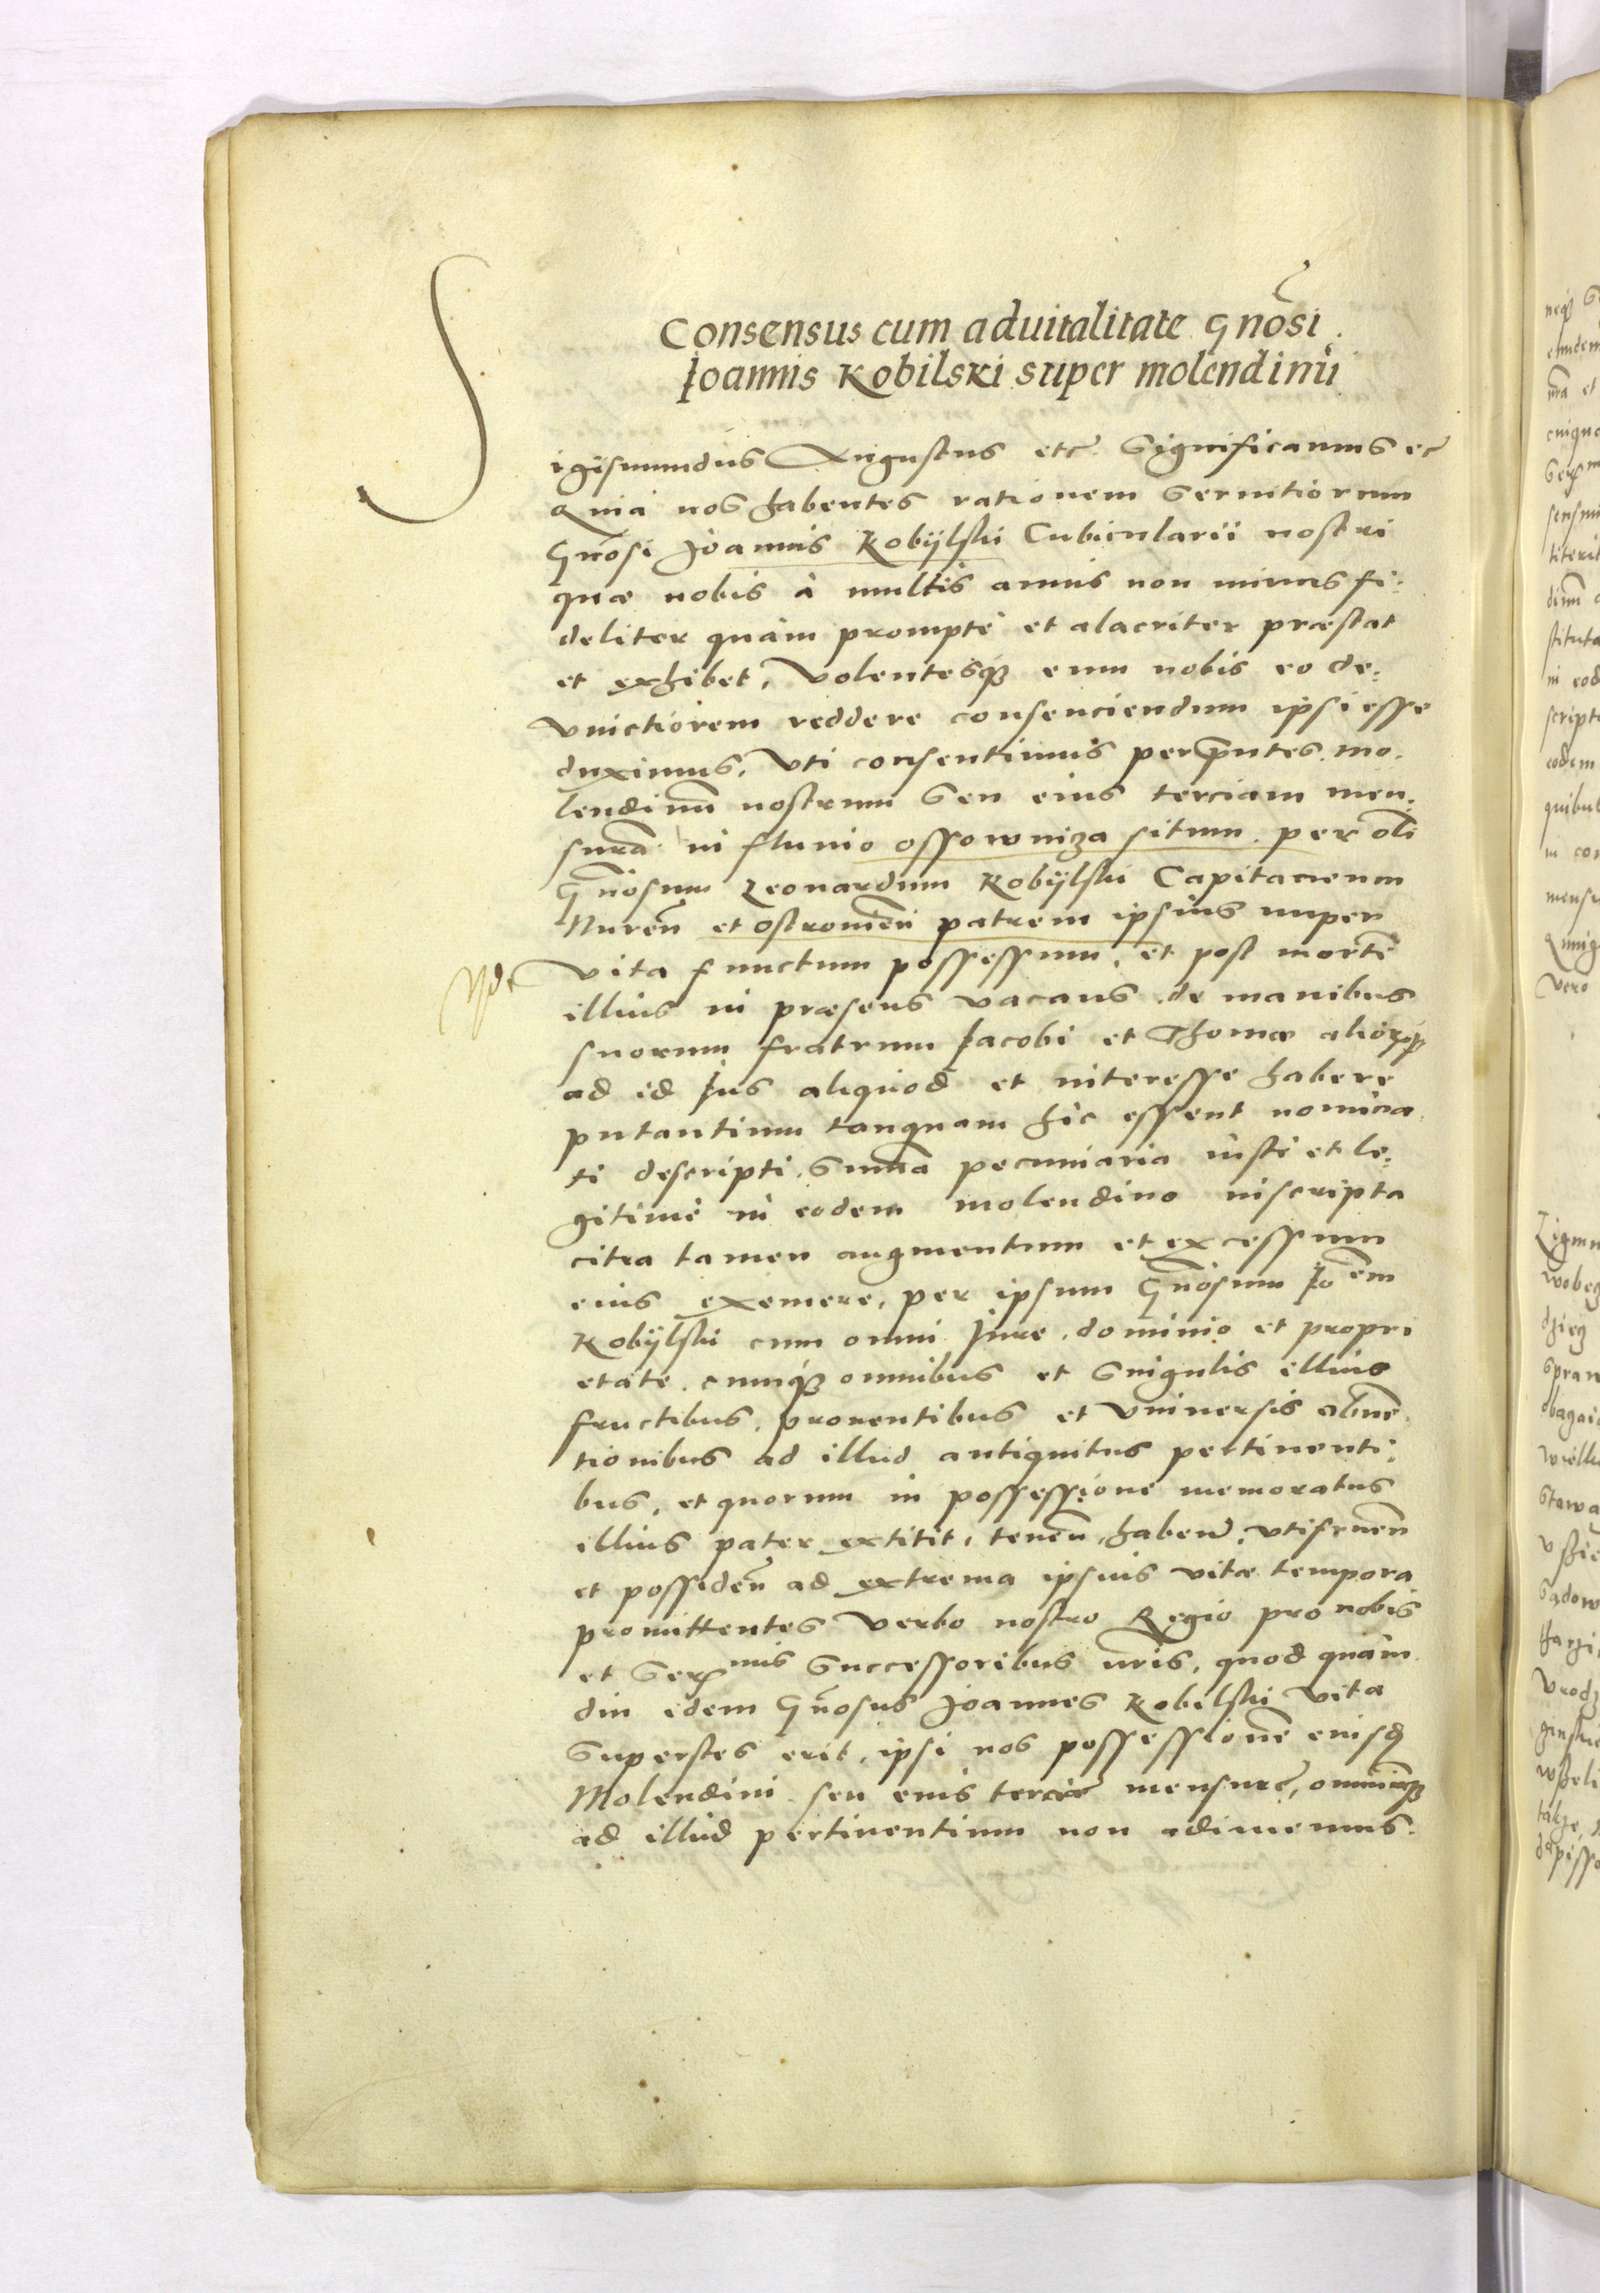 Consensus cum aduitalitate Gnosi
Joannis Kobilski super molendinū
Sigismundus Augustus etc. Significamus etc
Quia nos habentes rationem Seruitiorum
Gnosi Joannis Kobÿlski Cubicularii nostri
quæ nobis à multis annis non minus fi-
deliter quàm promptè et alacriter præstat
et exhibet, Volentesq3 eum nobis eo de-
vinctiorem reddere consenciendum ipsi esse
duximus, Vti consentimus per pntes. mo-
lendinū nostrum Seu eius terciam men-
surā in fluuio ossowniza situm. per oli
Gnosum Leonardum Kobÿlski Capitaneum
Nureñ et ostromeñ patrem ipsius nuper
vita functum possessum, et post mortē
illius in præsens vacans de manibus
suorum fratrum Jacobi et Thomæ aliorq3
ad id Jus aliquod et interesse habere
putantium tanquam hic essent nomina
ti descripti. Summa pecuniaria iusti et le-
gitimè in eodem molendino inscripta
citra tamen augmentum et excessum
eius exemere, per ipsum Gnosum Joem
Kobÿlski cum omni Jure, dominio et propri
etate, cumq3 omnibus et Singulis illius
fructibus, prouentibus et Vniuersis obuē
tionibus ad illud antiquitus pertinenti-
bus, et quorum in possessione memoratus
illius pater extitit, teneñ, habeñ, vtifrueñ
et possideñ ad extrema ipsius vitæ tempora
promittentes Verbo nostro Regio pro nobis
et Sermis Successoribus nris, quod quàm
diu idem Gnosus Joannes Kobelski Vita
Superstes erit, ipsi nos possessionē eiusd
Molendini seu eius terciæ mensuræ, omniūq3
ad illud pertinentium non adimemus.